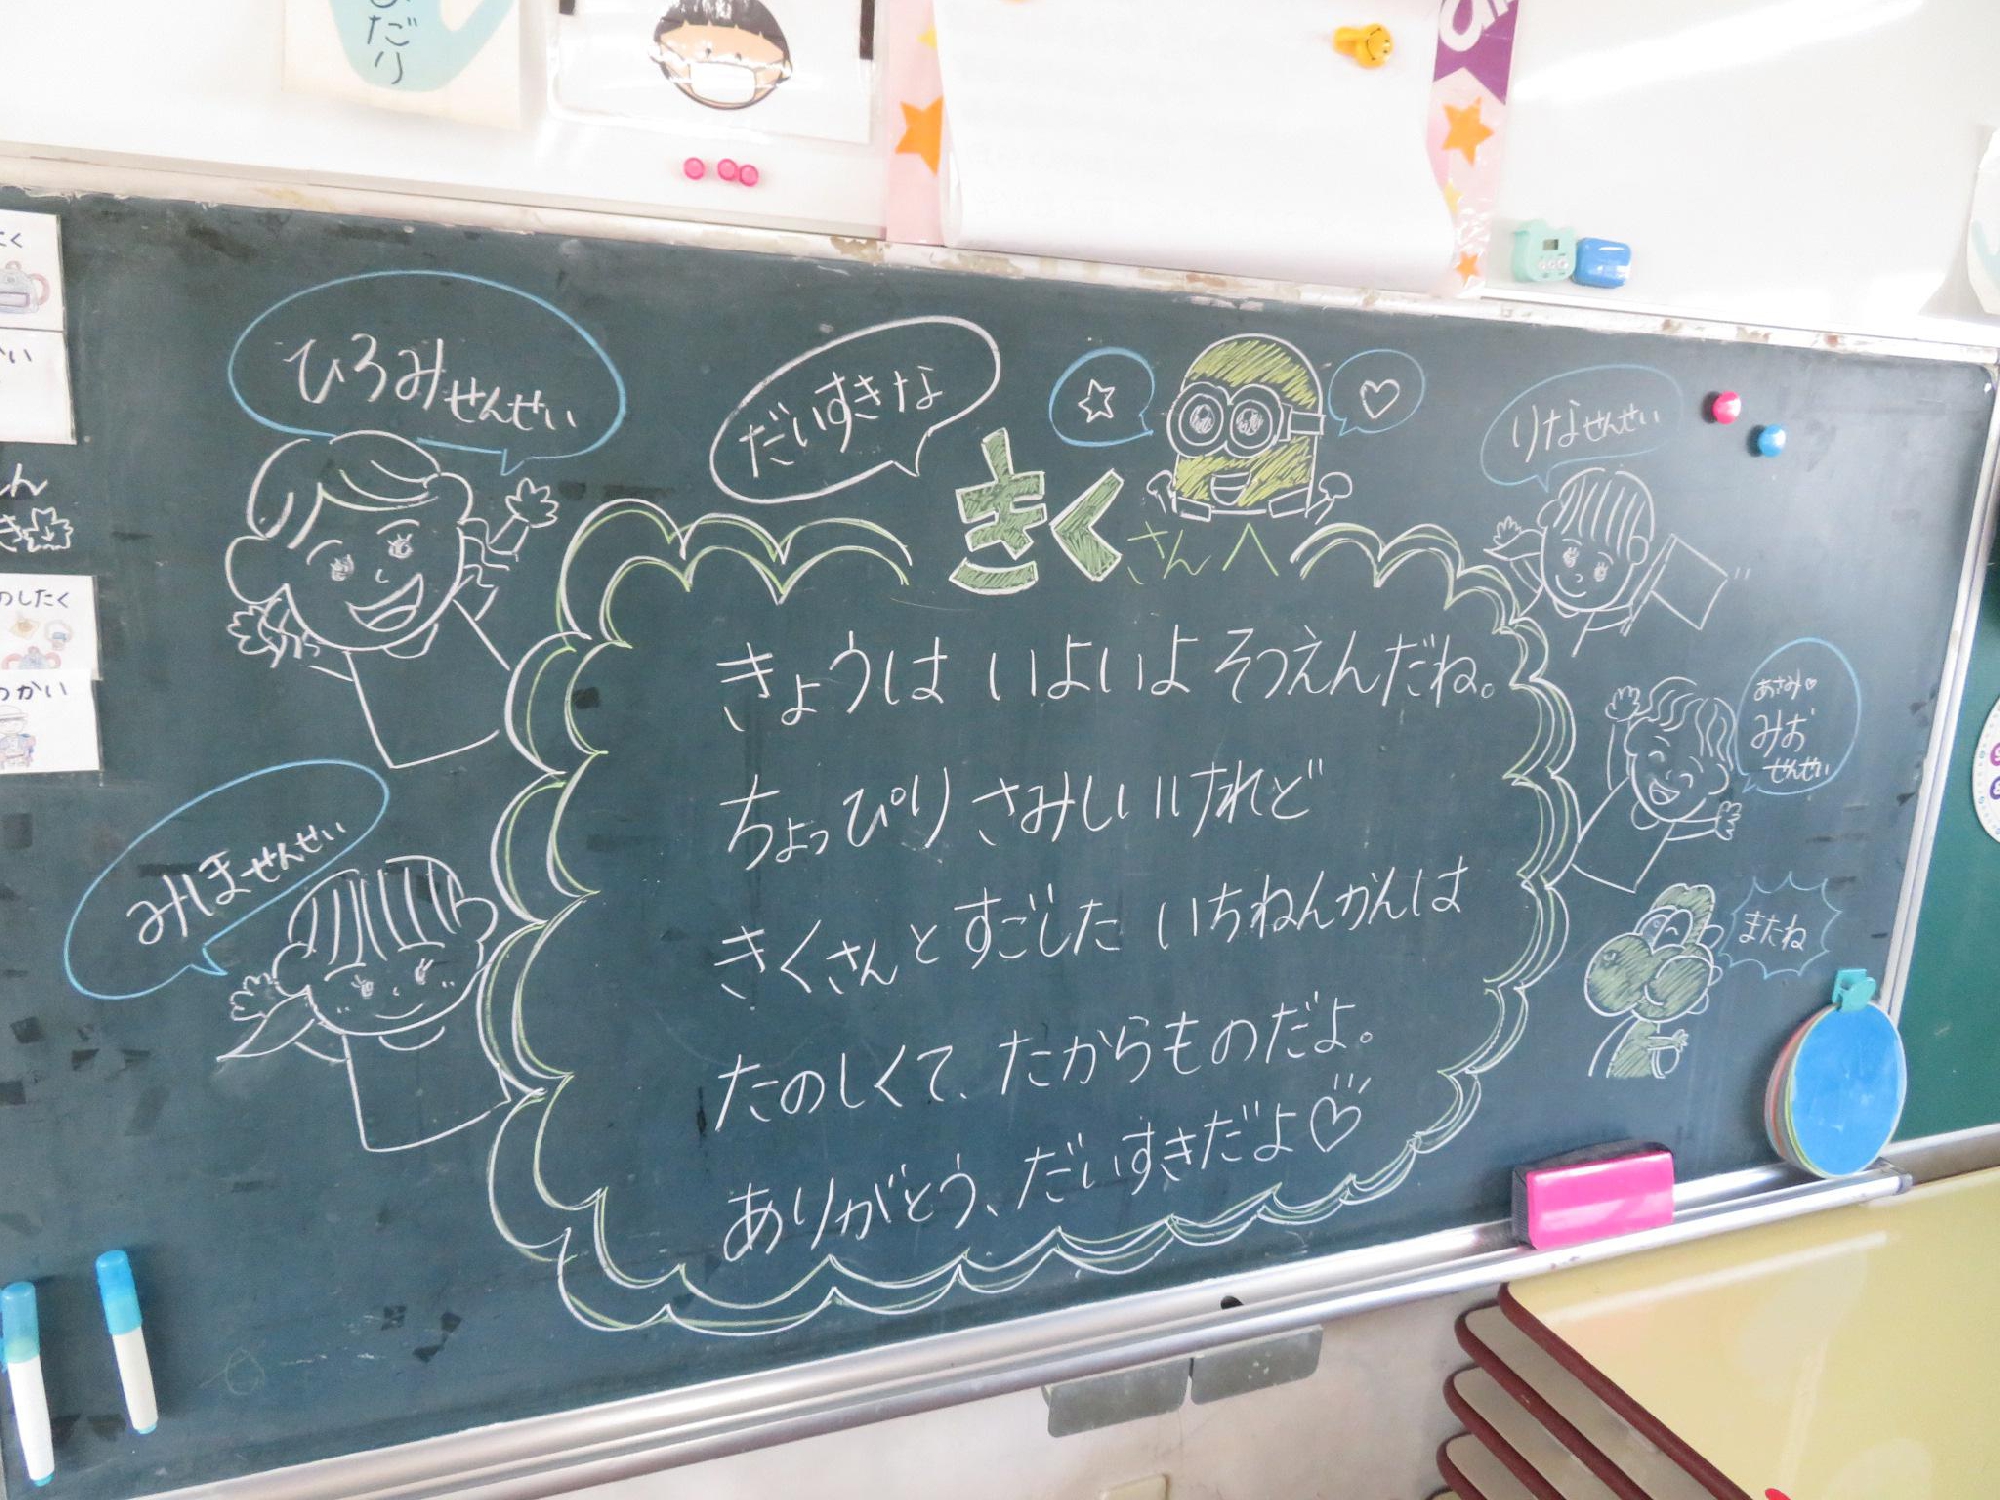 だり
ひろみせんせい
だいすきな
きくさんへ
りなせんせい
きょうは いよいよ そつえんだね。
ちょっぴり さみしいけれど
きくさんと すごした いちねんかんは
たのしくて、たからものだよ。
ありがとう、だいすきだよ♡
みほせんせい
あさみ♡
みお
せんせい
またね
のしたく